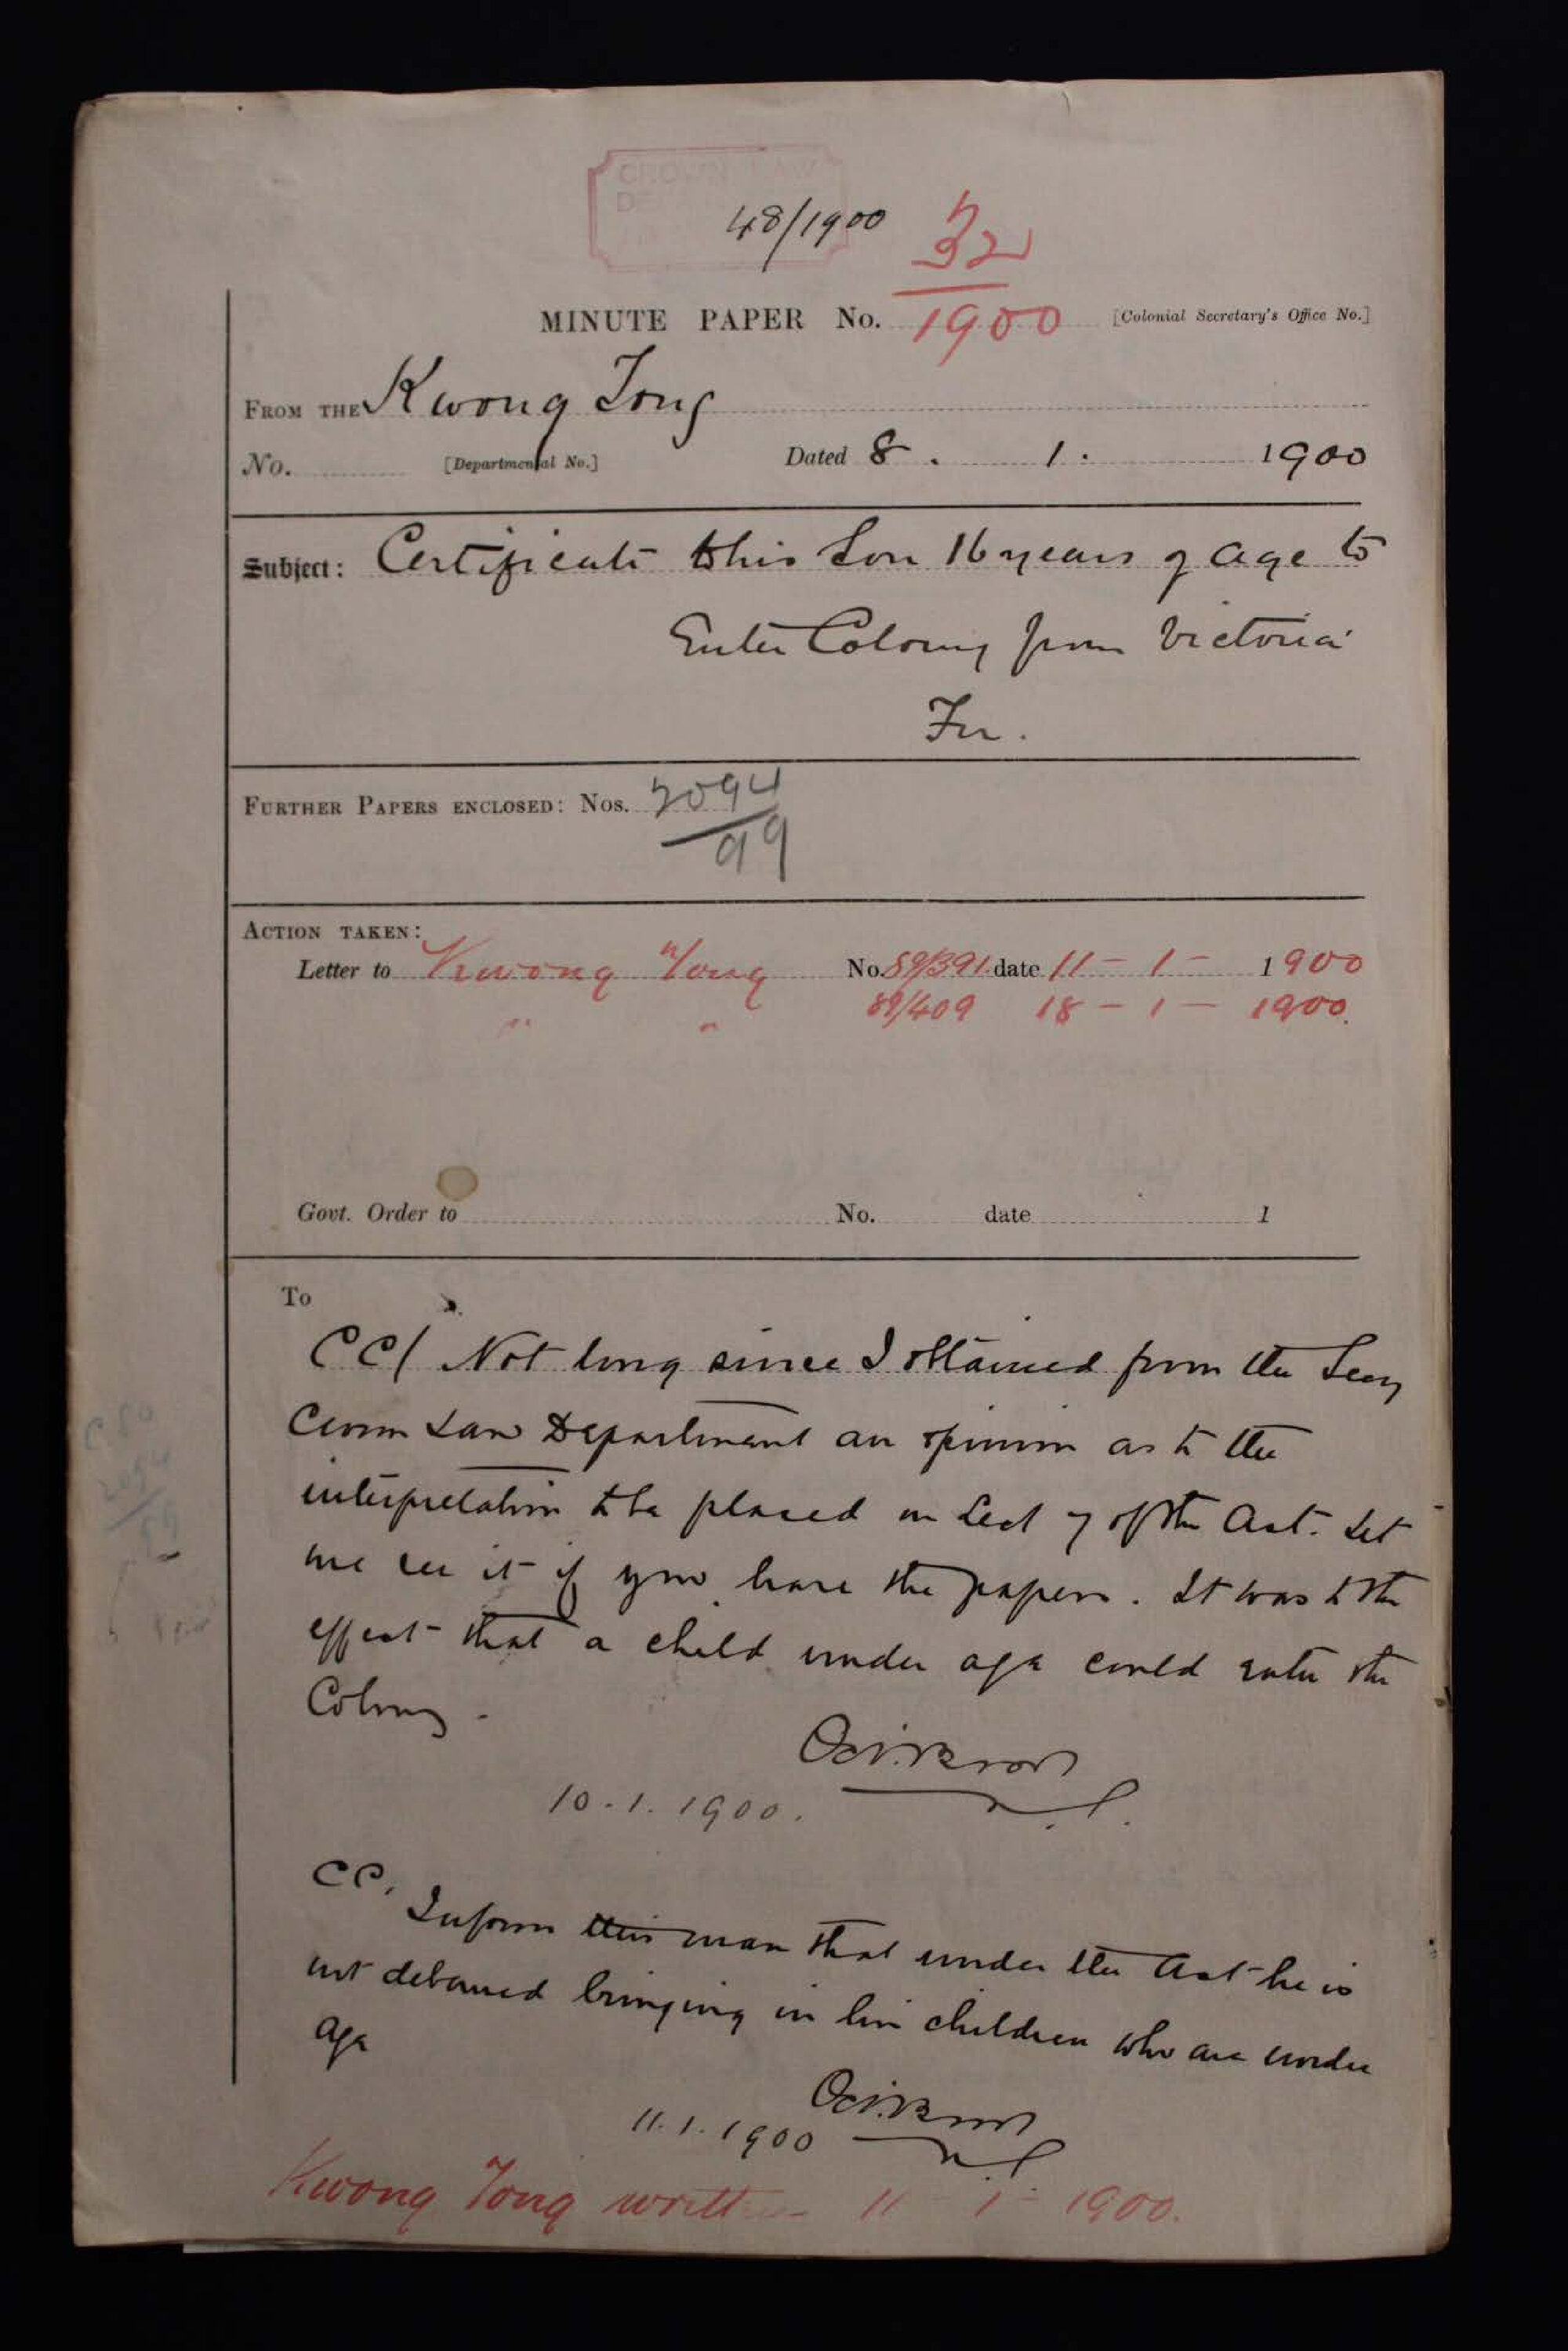 CROWN LAW
48/1900
32
MINUTE PAPER No. 1900 [Colonial Secretary's Office No.]
FROM THE Kwong Tong
No. [Departmental No.] Dated 8. 1. 1900
Subject: Certificate this Son 16 years of age to
Enter Colony from Victoria
For.
FURTHER PAPERS ENCLOSED: Nos. 2094
99
ACTION TAKEN:
Letter to Kwong Tong No. 89/391 date 11 - 1 - 1900
" " 89/409 18 - 1 - 1900.
Govt. Order to No. date 1
To
CC/ Not long since I obtained from the Secy
Crown Law Department an opinion as to the
interpretation to be placed on Sect 7 of the Act. Let
me see it if you have the papers. It was to the
effect that a child under age could enter the
Colony.
10.1.1900.
CC. Inform this man that under the Act he is
not debarred bringing in his children who are under
age
11.1.1900
Kwong Tong written 11 - 1 - 1900.